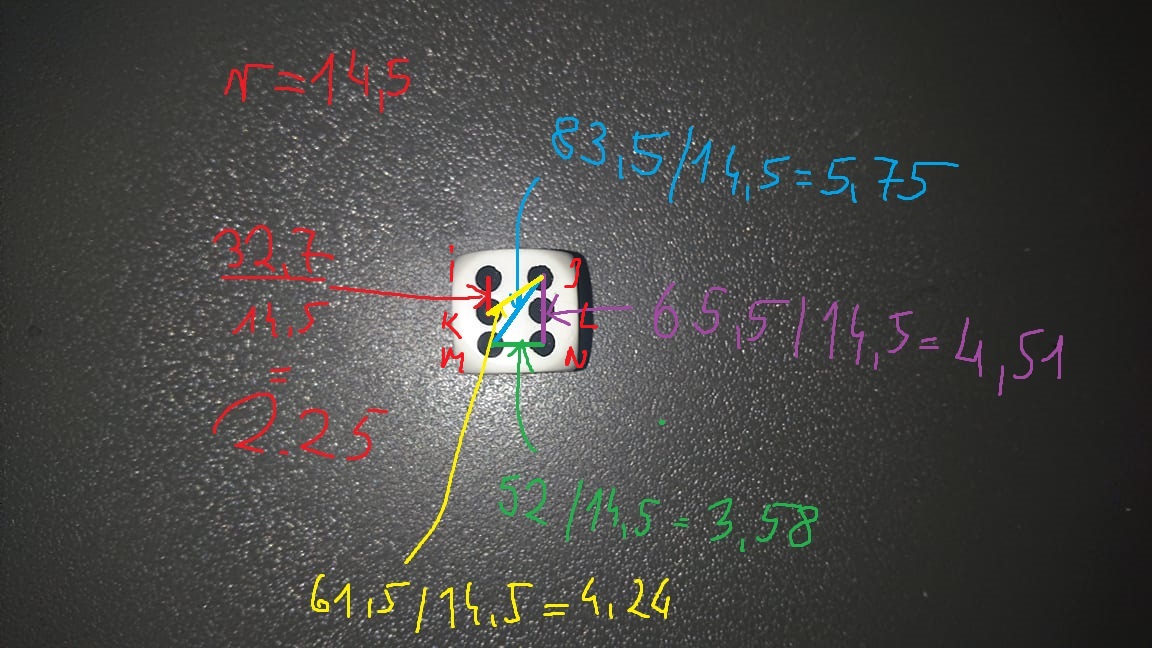 r=14,5
83,5/14,5=5,75
32,7
14,5
=
2.25
I J
K L
M N
65,5/14,5=4,51
52/14,5=3,58
61,5/14,5=4,24